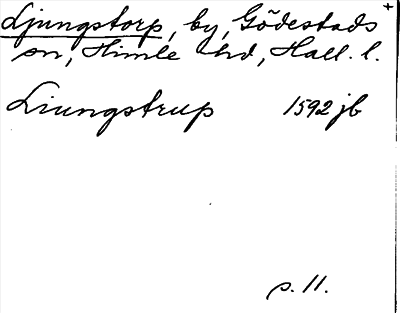 Ljungstorp, by, Gödestads +
sn, Himle hd, Hall. l.
Liungstrup 1592 jb
s. 11.